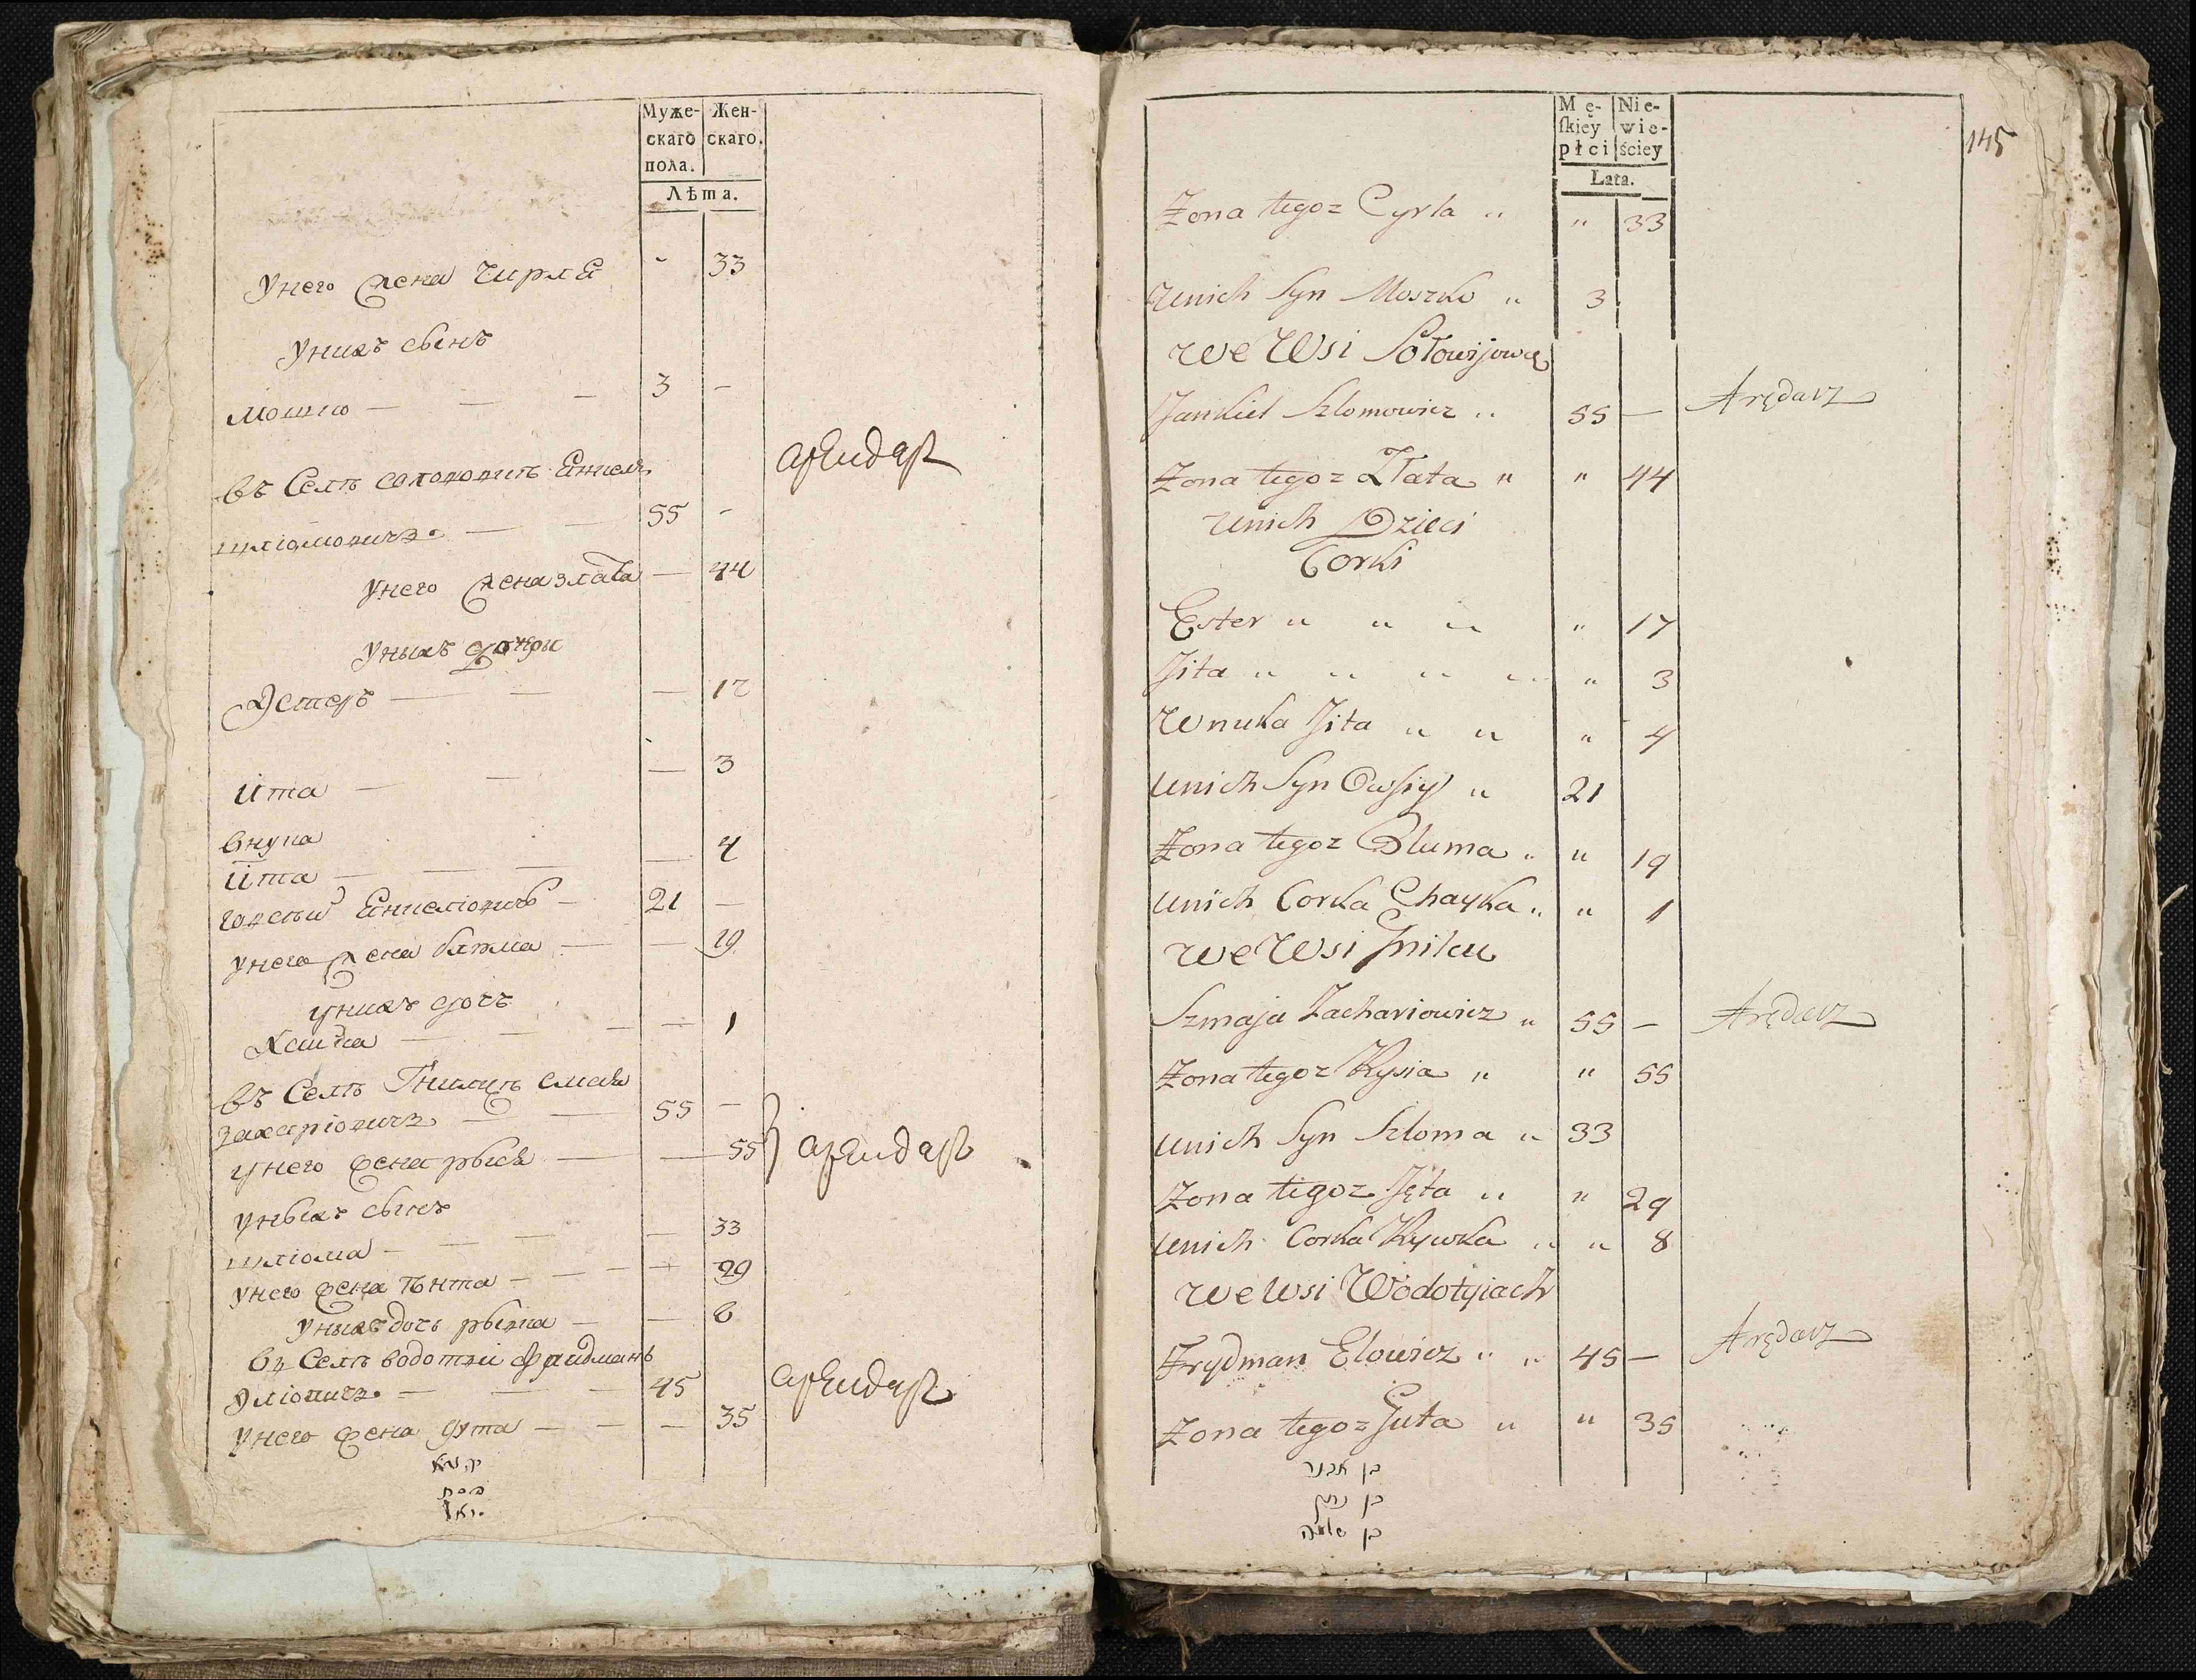 Муже-
скаго
пола.
Жен-
скаго.
Лѣта.
У него жена Чирля " 33
У нихъ сынъ
Мошко — — — 3 —
Въ Селѣ Соловіовкѣ Янкель
Шліомовичъ — — 55 - арендар
У него жена Злата — 44
У ныхъ дочери
Эстеръ — — — 17
Ита — — — 3
Внука
Ита — — — — 4
Іовсѣй Янкеліовичъ — 21 —
У него жена Блюма — — 19
У нихъ дочь
Хайка — — — — 1
Въ Селѣ Гнилцѣ Смая
Захаріовичъ — — 55 — арендар
У него жена Рыся — — 55
У ныхъ сынъ
Шліома — — — — 33
У него жена Ѣнта — — — — 29
У ныхъ дочь Рывка — — 8
Въ Селѣ Водотѣи Фридманъ
Эліовичъ — — — 45 арендар
У него жена Гута — — — 35
145
Mę-
ſkiey
płci
Nie-
wie-
ściey
Lata.
Zona tegoz Cyrla " " 33
U nich Syn Moszko " 3
We Wsi Sołowijowce
Jankiel Szlomowicz " 55 — Arędarz
Zona tegoz Złata " " 44
U nich Dzieci
Corki
Ester " " " " 17
Jita " " " " " 3
Wnuka Jita " " " 4
U nich Syn Owsiy " 21
Zona tegoz Bluma " " 19
U nich Corka Chayka " " 1
We Wsi Gnilcu
Szmaja Zachariowicz " 55 — Arędarz
Zona tegoz Rysia " " 55
U nich Syn Szloma " 33
Zona tegoz Jęta " " 29
U nich Corka Rywka " " 8
We Wsi Wodotyiach
Frydman Elowicz " " 45 — Arędarz
Zona tegoz Guta " " 35
בן אבנר
בן
בן שלמה